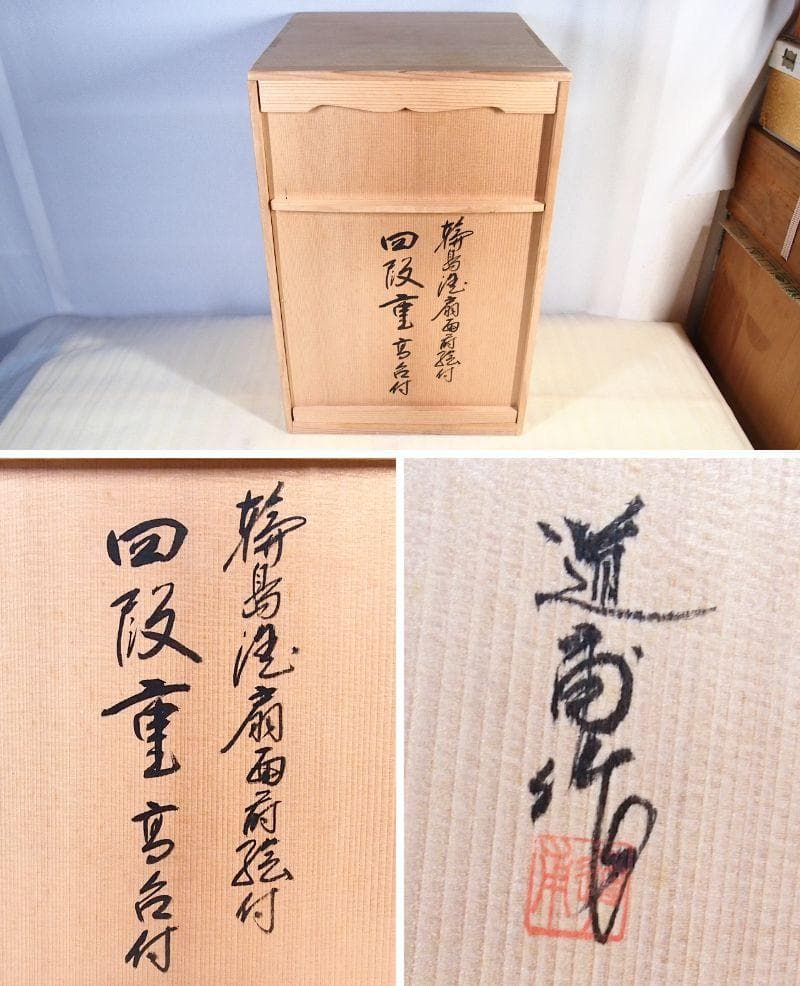 輪島塗扇面蒔絵付
四段重高台付
輪島塗扇面蒔絵付
四段重高台付
道甫作
道甫